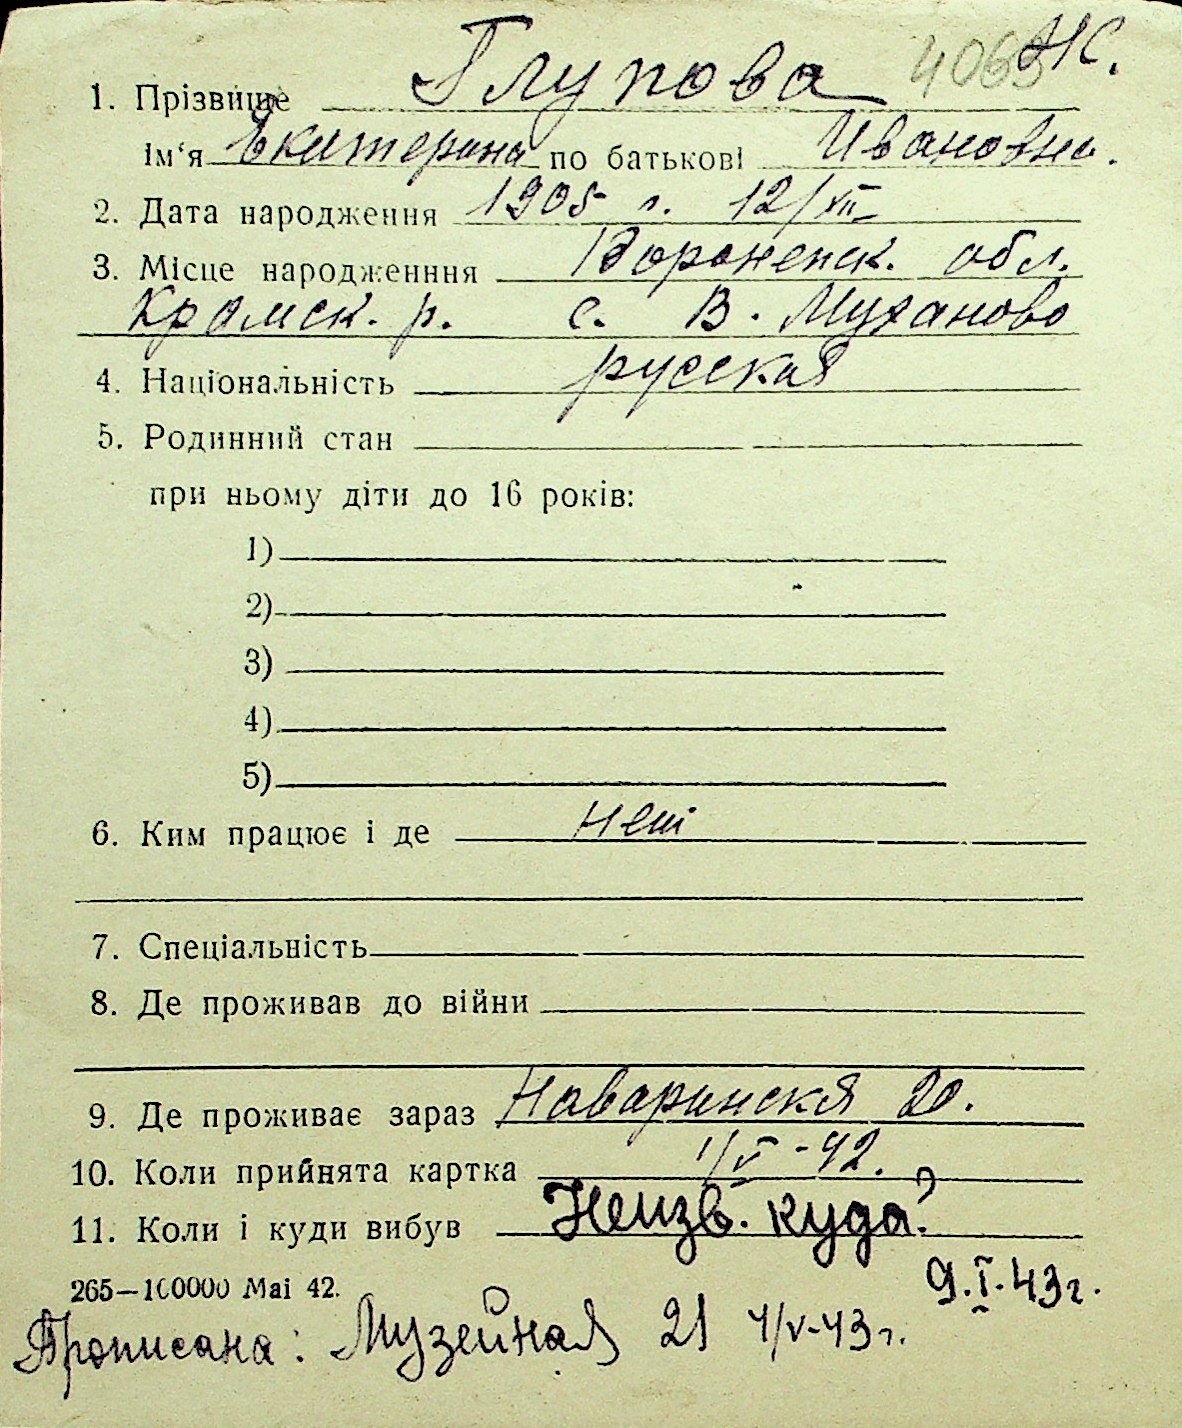 4063 НС.
1. Прізвище Глупова
Ім‘я Екатерина по батькові Ивановна.
2. Дата народження 1905 г. 12/VII
3. Місце народженння Воронежск. обл.
с. В.
4. Національність русская
5. Родинний стан
при ньому діти до 16 років:
1)
2)
3)
4)
5)
6. Ким працює і де Нет
7. Спеціальність
8. Де проживав до війни
9. Де проживає зараз Наваринскя 20.
10. Коли прийнята картка 1/V-42.
11. Коли і куди вибув Неизв. куда?
265—100000 Маі 42. 9.I.43г.
Прописана: Музейная 21 4/V-43г.